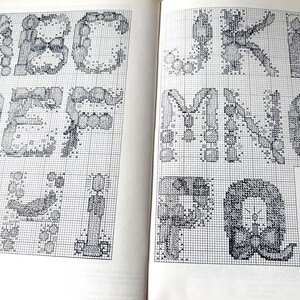 ABC
DEF
HI
JK
MN
PQ